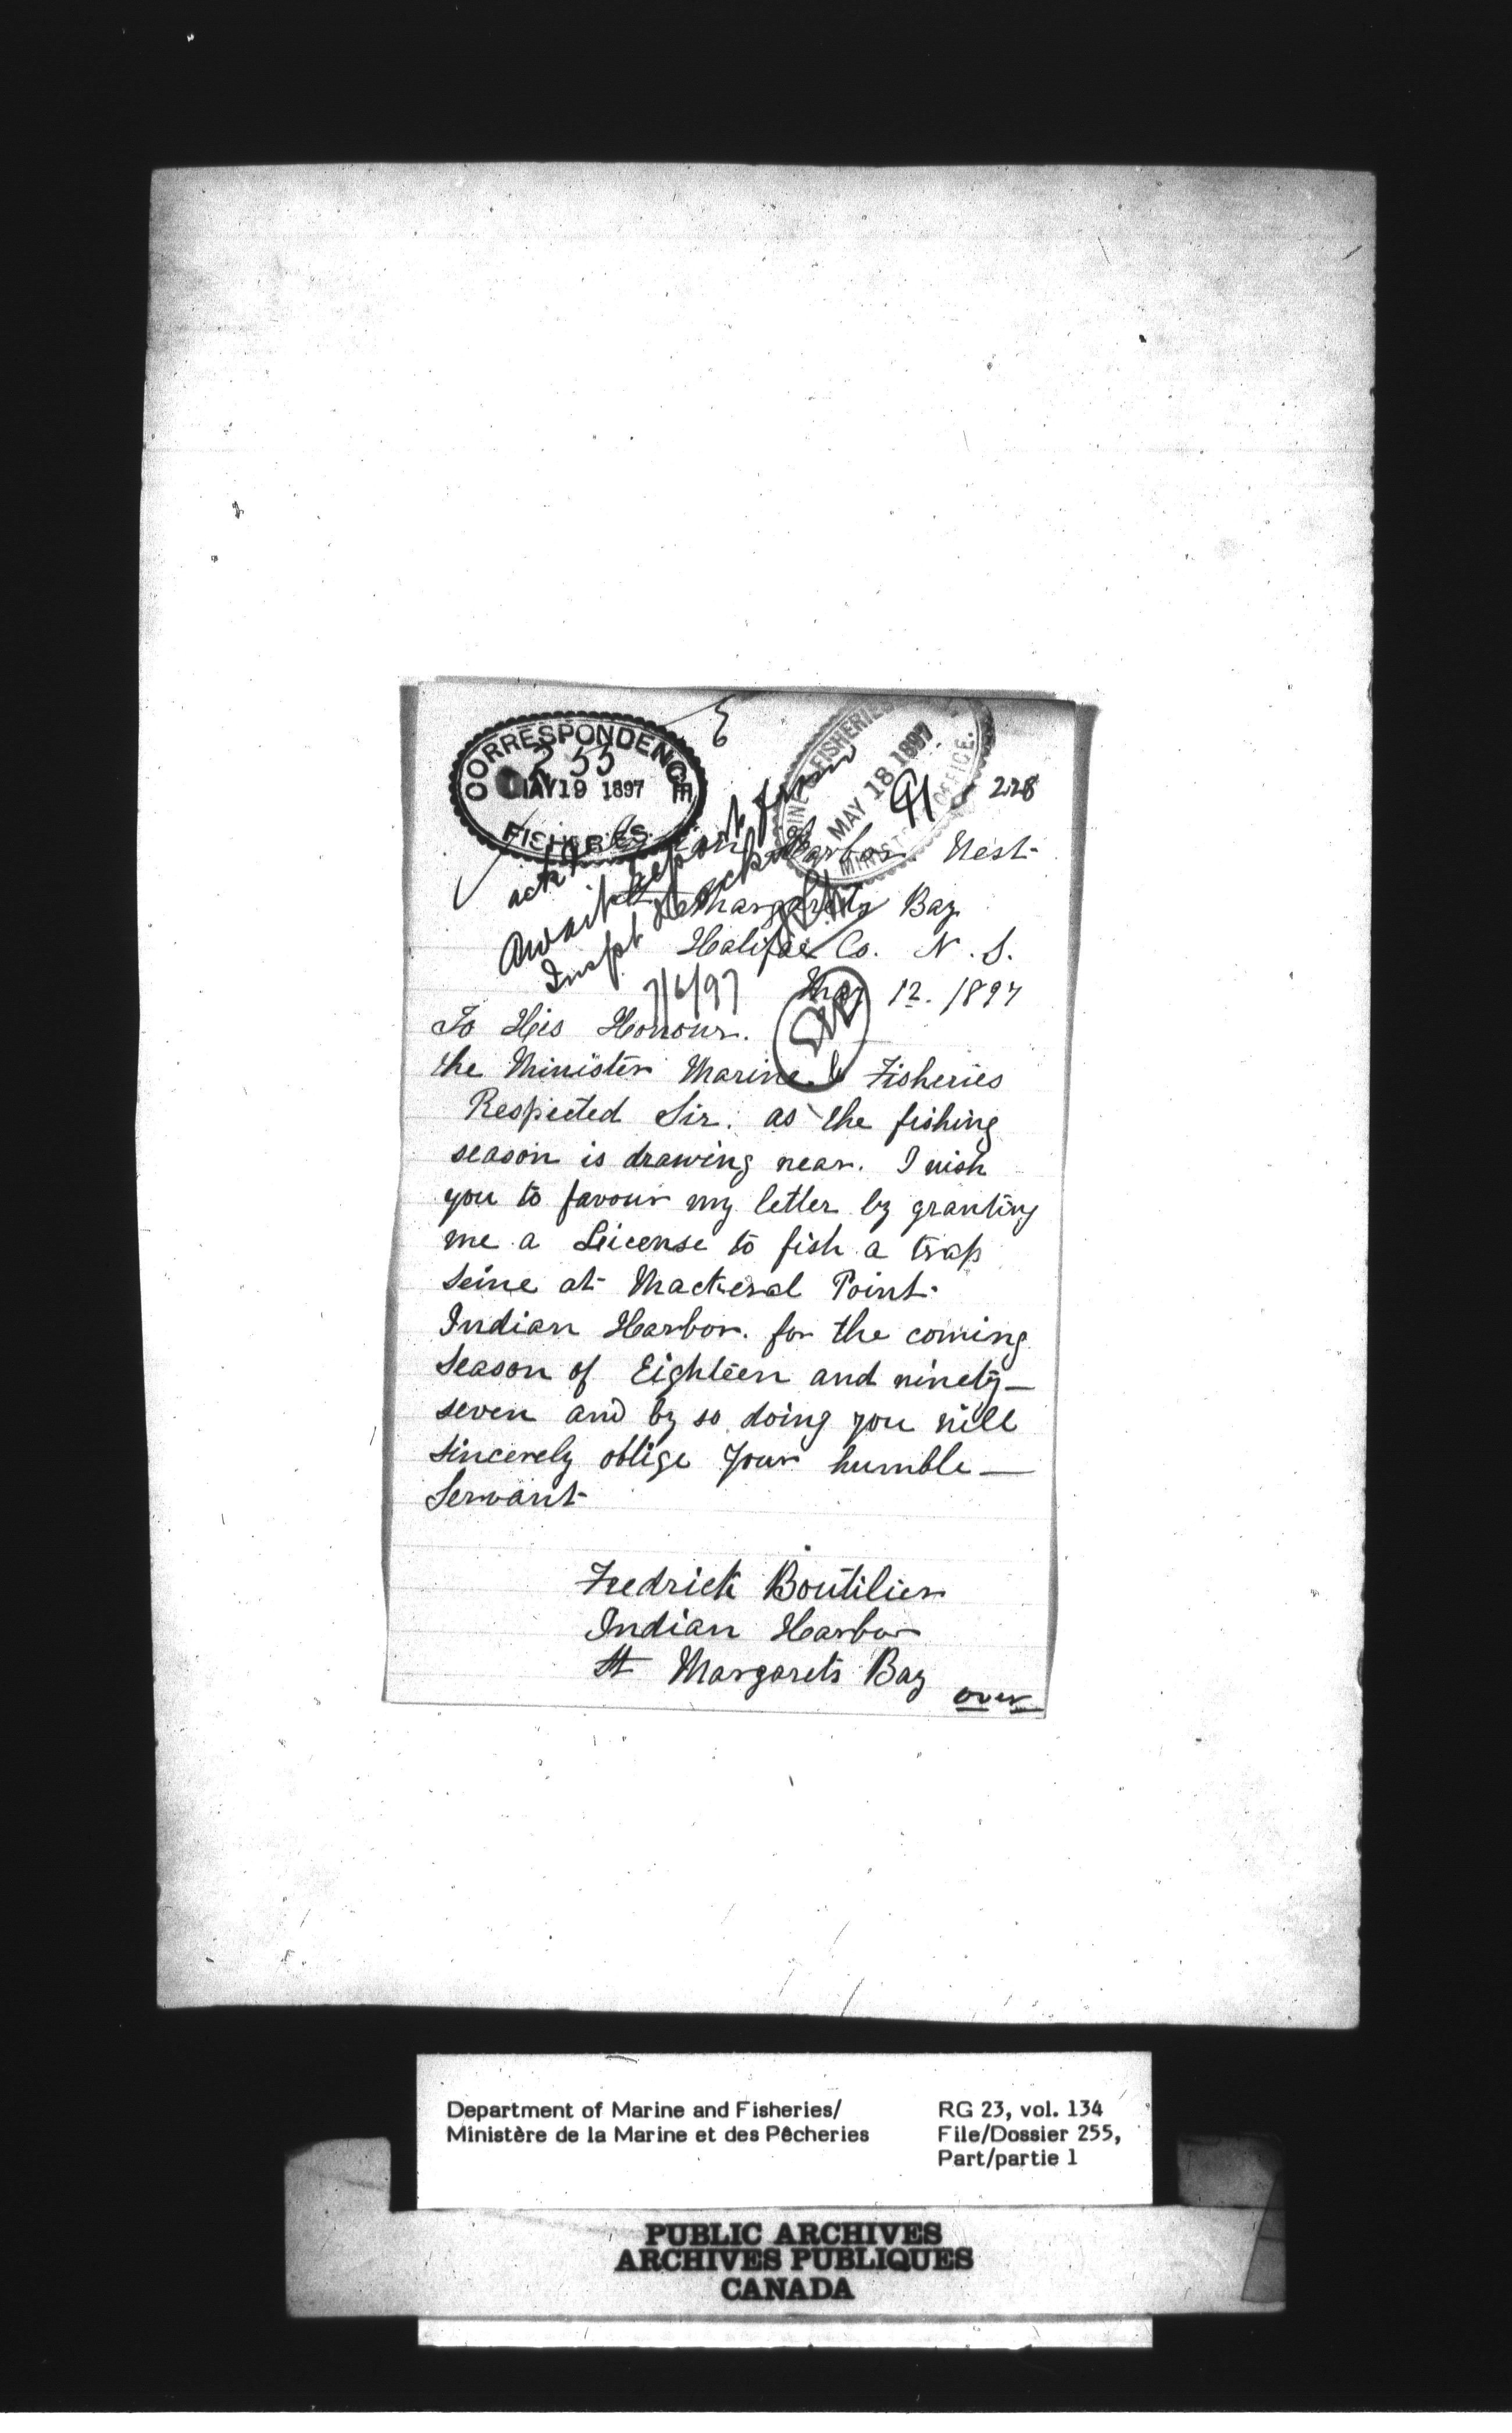 CORRESPONDENCE
255
MAY 19 1897
FISHERIES
MARINE & FISHERIES
MAY 18 1897
MINISTER'S OFFICE.
91
228
ackd
Await report from
Inspt Hockin
7/6/97
Harbor West
St Margarets Bay
Halifax Co. N. S.
May 12. 1897
To His Honour.
the Minister Marine & Fisheries
Respected Sir. as the fishing
season is drawing near. I wish
you to favour my letter by granting
me a License to fish a trap
Seine at Mackeral Point.
Indian Harbor. for the coming
Season of Eighteen and ninety—
seven and by so doing you will
sincerely oblige Your humble—
Servant
Fredrick Boutilier
Indian Harbor
St Margarets Bay
over
Department of Marine and Fisheries/
Ministère de la Marine et des Pêcheries
RG 23, vol. 134
File/Dossier 255,
Part/partie 1
PUBLIC ARCHIVES
ARCHIVES PUBLIQUES
CANADA